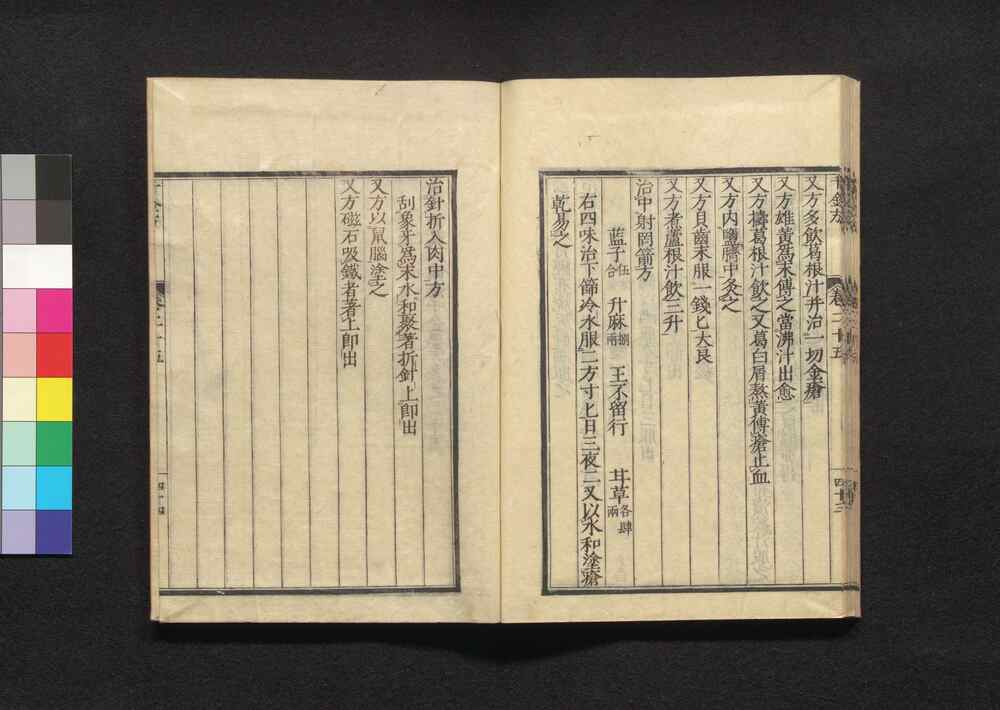 千金方 卷二十五 四十三
又方多飲葛根汁并治一切金瘡
又方雄黃爲末傅之當沸汁出愈
又方擣葛根汁飲之又葛白屑熬黃傅瘡止血
又方内鹽臍中灸之
又方貝齒末服一錢匕大良
又方煮蘆根汁飲三升
治中射罔箭方
藍子伍合 升麻捌兩 王不留行 甘草各肆兩
右四味治下篩冷水服二方寸匕日三夜二又以水和塗瘡
乾易之
治針折入肉中方
刮象牙爲末水和聚著折針上卽出
又方以鼠腦塗之
又方磁石吸鐵者著上卽出